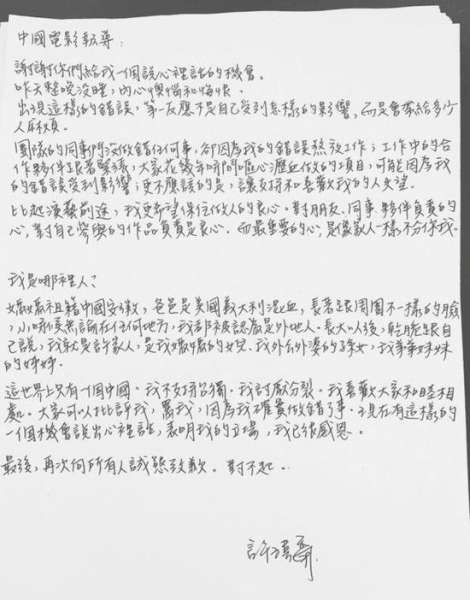 中國電影報導：
謝謝你們給我一個說心裡話的機會。
昨天整晚沒睡，內心懊惱和悔恨。
出現這樣的錯誤，第一反應不是自己受到怎樣的影響，而是會帶給多少
人麻煩。
團隊的同事們沒做錯任何事，卻因為我的錯誤熬夜工作；工作中的合
作夥伴跟著緊張，大家花幾年時間嘔心瀝血做的項目，可能因為我
的錯誤受到影響；更不應該的是，讓支持和喜歡我的人失望。
比起演藝前途，我更希望保住做人的良心。對朋友、同事、夥伴負責的
心，對自己參與的作品負責是良心。而最重要的心，是像家人一樣不分你我。
我是哪裡人？
媽媽祖籍中國安徽，爸爸是美國義大利混血，長著跟周圍不一樣的臉，
小時候無論在任何地方，我都被認為是外地人。長大以後，乾脆跟自
己說，我就是許家人，是我媽媽的女兒、我外公外婆的孫女、我爭爭妹妹
的姊姊。
這世界上只有一個中國。我不支持台獨。我討厭分裂。我喜歡大家和睦相
處。大家可以批評我，罵我，因為我確實做錯了事。現在有這樣的
一個機會說出心裡話，表明我的立場，我已很感恩。
最後，再次向所有人誠懇致歉。對不起。
許瑋甯